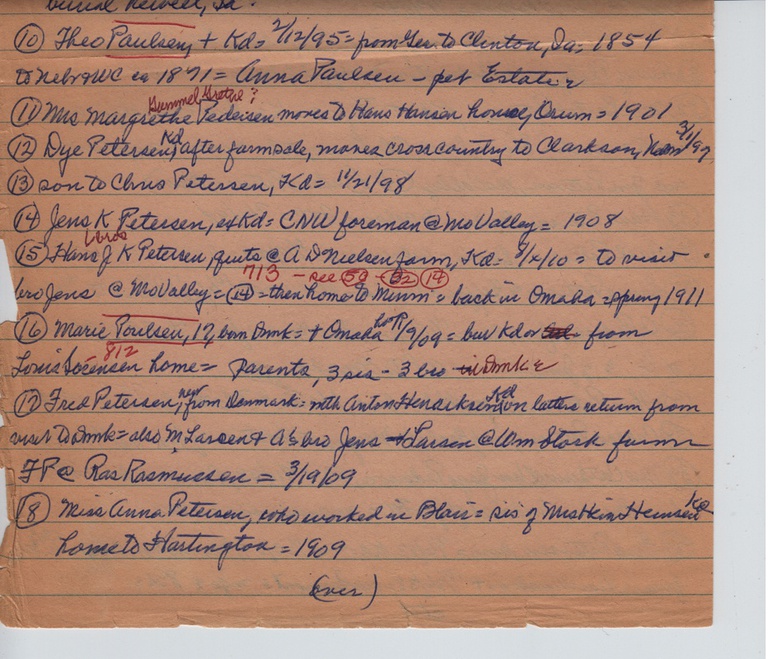 burial Newell, Ia.
(10) Theo Paulsen, + Kd = 2/12/95 = from Ger. to Clinton, Ia = 1854
to Nebr & WC ca 1871 = Anna Paulsen - pet Estate
Gummel Gretge?
(11) Mrs Margrethe Pedersen moves to Hans Hansen house, Orum = 1901
(12) Dye Petersen, Kd, after farm sale, moves cross country to Clarkson, 3/1/97
(13) son to Chris Petersen, Kd = 11/21/98
(14) Jens K Petersen, ex Kd = CNW foreman @ Mo Valley = 1908
bros
(15) Hans J K Petersen, quits @ A D Nielsen farm, Kd = /10 = to visit
713 - see 50 - 52 (14)
bro Jens @ Mo Valley = (14) = then home to Minn = back in Omaha = spring 1911
(16) Marie Poulsen, 17, born Dmk = + Omaha hosp /9/09 = bur Kd or from
812
Louis Sorensen home = parents, 3 sis - 3 bro in Dmk
(17) Fred Petersen, new from Danmark = with Anton Henricksen, Kd on latters return from
visit to Dmk = also M Larsen & A's bro Jens Larsen @ Wm Stork farm
FP @ Ras Rasmussen = 3/19/09
(18) Miss Anna Petersen, who worked in Blair = sis of Mrs Hein Hemsen Kd
home to Hartington = 1909
(over)